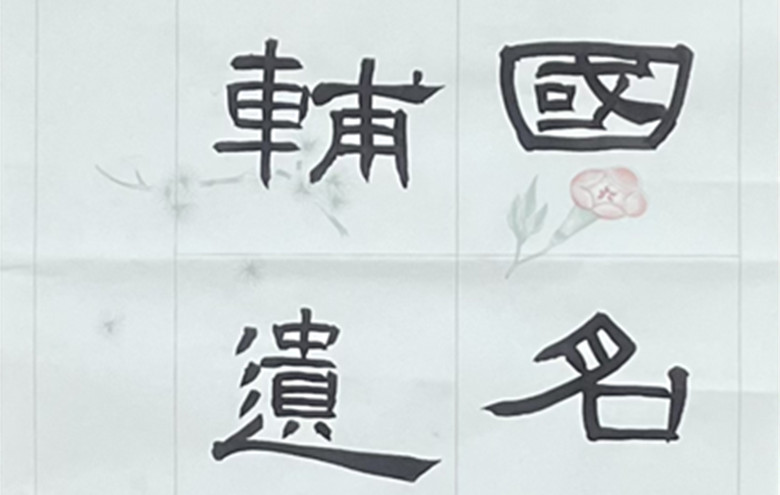 國名
輔遺